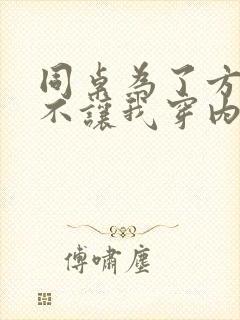 同桌为了方
不讓我穿内
傅嘯塵